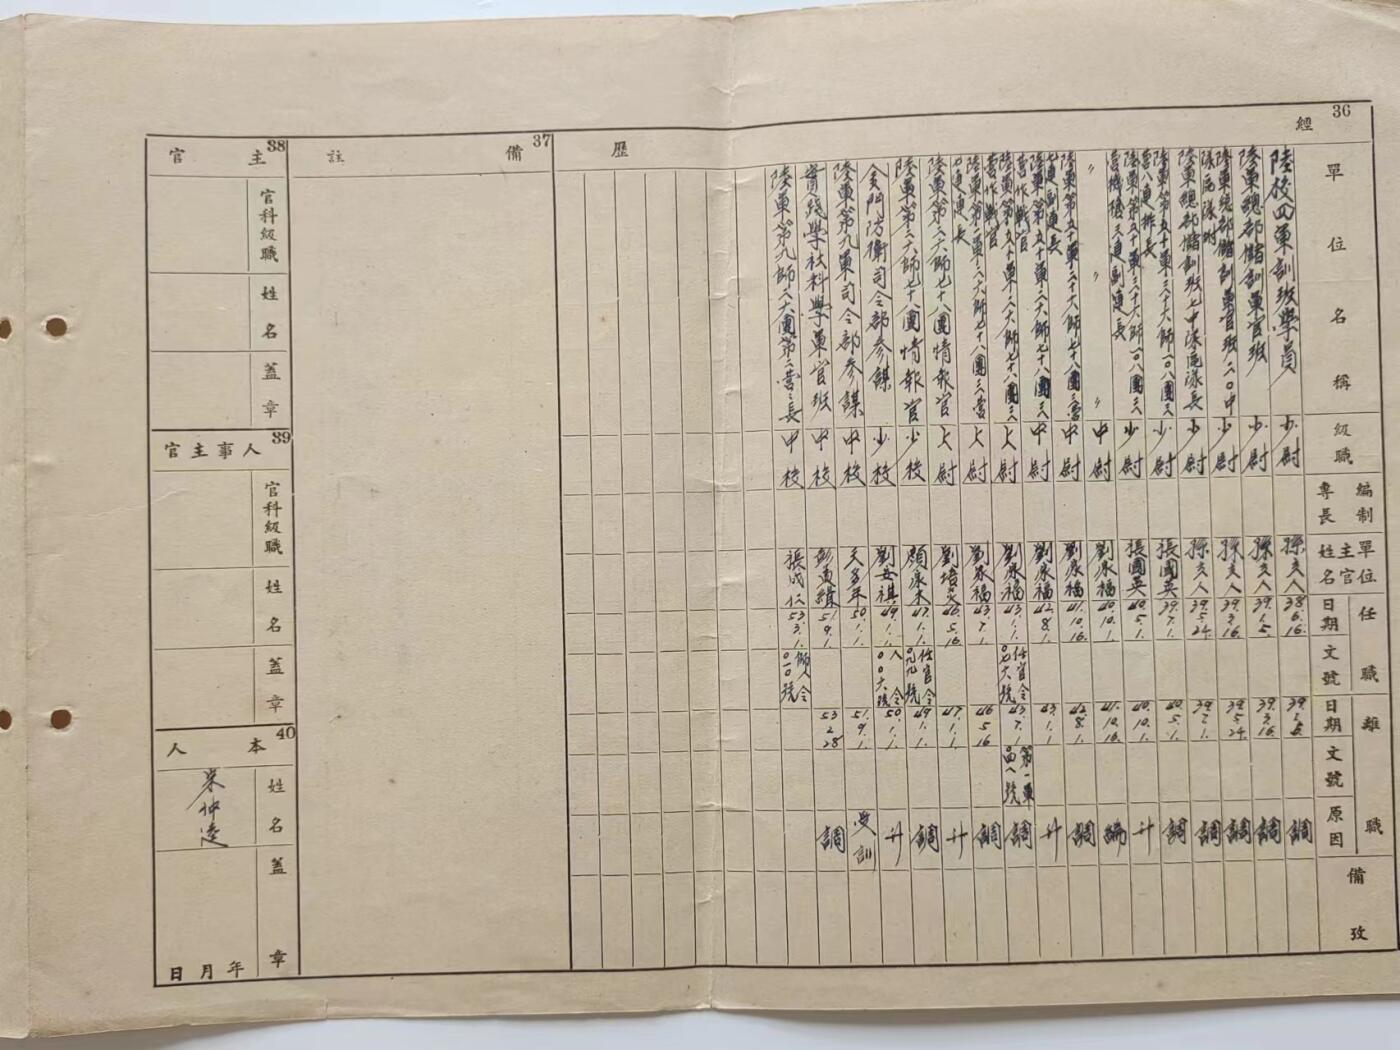 36
經歷
單位名稱
級職
編制專長
單位主官姓名
任職
日期
文號
離職
日期
文號
原因
備攷
陸校四軍訓班學員
少尉
孫立人
38.6.16.
調
陸軍總部儲訓軍官班
少尉
孫立人
39.1.5.
39.3.16.
調
陸軍總部儲訓軍官班二〇中隊區隊附
少尉
孫立人
39.3.16.
39.5.24.
調
陸軍總部儲訓班七中隊區隊長
少尉
孫立人
39.5.24.
39.7.1.
調
陸軍第五十軍三十六師一〇八團三營八連排長
少尉
張國英
39.7.1.
40.5.1.
調
陸軍第五十軍三十六師一〇八團三營機槍三連副連長
少尉
張國英
40.5.1.
40.10.1.
升
〃 〃 〃
中尉
劉永福
40.10.1.
41.10.16.
編
陸軍第五十軍三十六師七十八團三營七連副連長
中尉
劉永福
41.10.16.
42.8.1.
調
陸軍第五十軍三十六師七十八團三營作戰官
中尉
劉永福
42.8.1.
43.1.1.
升
陸軍第五十軍三十六師七十八團三營作戰官
上尉
劉永福
43.1.1.
任官令
〇七六號
43.7.1.
第一軍
〇四八號
調
陸軍第一軍三十六師七十八團三營七連連長
上尉
劉永福
43.7.1.
46.5.16
調
陸軍第三十六師七十八團情報官
上尉
46.5.16
47.1.1.
升
陸軍第三十六師七十八團情報官
少校
顏承木
47.1.1.
任官令
〇九九號
49.1.1.
調
金門防衛司令部參謀
少校
劉安祺
49.1.1.
人令
〇〇六號
50.1.1.
升
陸軍第九軍司令部參謀
中校
50.1.1.
51.9.1.
受訓
實踐學社科學軍官班
中校
彭孟緝
51.9.1.
53.2.28
調
陸軍第九師二六團第二營營長
中校
張成仁
53.3.1.
師人令
〇一〇號
37
備註
38
主官
官科級職
姓名
蓋章
39
人事主官
官科級職
姓名
蓋章
40
本人
姓名
宋仲逵
蓋章
年月日